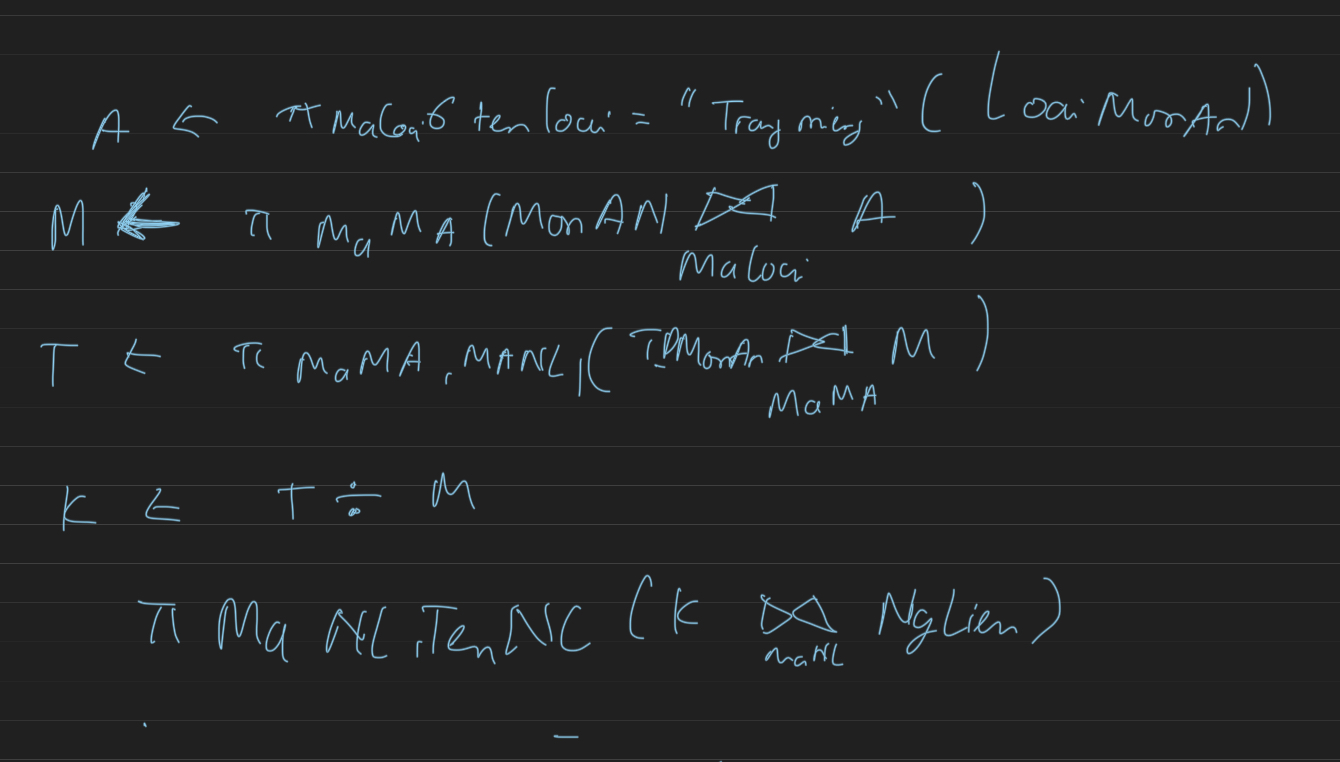 A ← π MaLoai σ tenloai = "Trang miệng" ( LoaiMonAn))
M ← π MaMA (MonAN ⋈ A )
Maloai
T ← π MaMA, MANL, ( TPMonAn ⋈ M )
MaMA
K ← T ÷ M
π MaNL, TenNL ( K ⋈ NgLieu )
MaNL